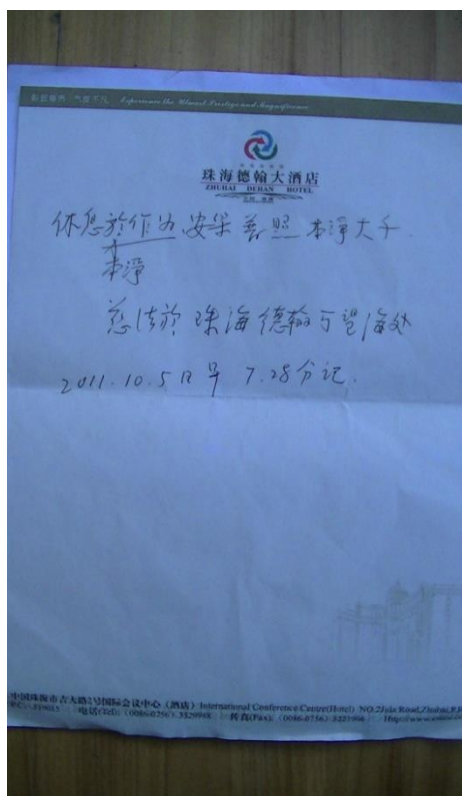 Experience the Ultimate Prestige and Magnificence
珠海德翰大酒店
ZHUHAI DEHAN HOTEL
休息於作为 安乐 普照 本净大千.
本净
慈法於 珠海德翰可望海处
2011.10.5日早 7.28分记.
中国珠海市吉大路2号国际会议中心（酒店）International Conference Centre(Hotel) NO.2Jida Road,Zhuhai,P.R
519015 电话(Tel): (0086-0756) 3329988 传真(Fax): (0086-0756)